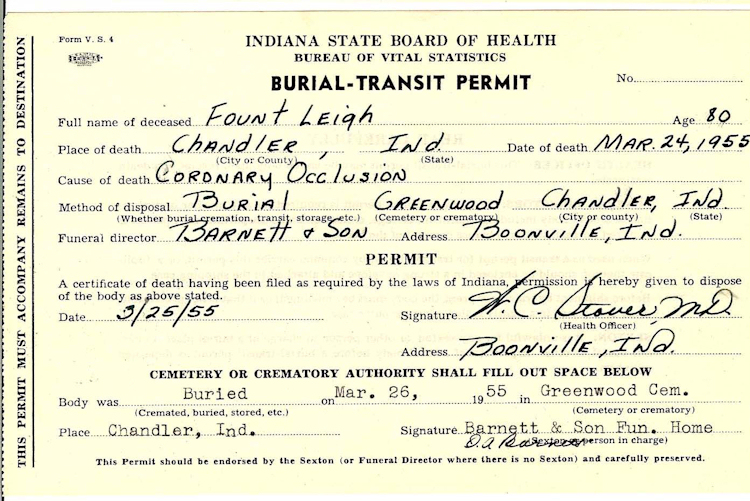 Form V. S. 4
INDIANA STATE BOARD OF HEALTH
BUREAU OF VITAL STATISTICS
BURIAL-TRANSIT PERMIT
No.
Full name of deceased Fount Leigh Age 80
Place of death Chandler, Ind Date of death Mar. 24, 1955
(City or County) (State)
Cause of death Coronary Occlusion
Method of disposal Burial Greenwood Chandler, Ind.
(Whether burial cremation, transit, storage, etc.) (Cemetery or crematory) (City or county) (State)
Funeral director Barnett & Son Address Boonville, Ind.
PERMIT
A certificate of death having been filed as required by the laws of Indiana, permission is hereby given to dispose
of the body as above stated.
Date 3/25/55 Signature W. C. Stover, MD
(Health Officer)
Address Boonville, Ind.
CEMETERY OR CREMATORY AUTHORITY SHALL FILL OUT SPACE BELOW
Body was Buried on Mar. 26, 1955 in Greenwood Cem.
(Cremated, buried, stored, etc.) (Cemetery or crematory)
Place Chandler, Ind. Signature Barnett & Son Fun. Home
(Sexton or person in charge)
This Permit should be endorsed by the Sexton (or Funeral Director where there is no Sexton) and carefully preserved.
THIS PERMIT MUST ACCOMPANY REMAINS TO DESTINATION